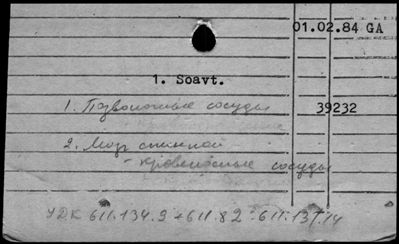 01.02.84 GA
1. Soavt.
1. Позвоночные сосуды 39232
2. Мозг спинной
- кровеносные сосуды
УДК 611.134.9 + 611.82 : 611.137.14